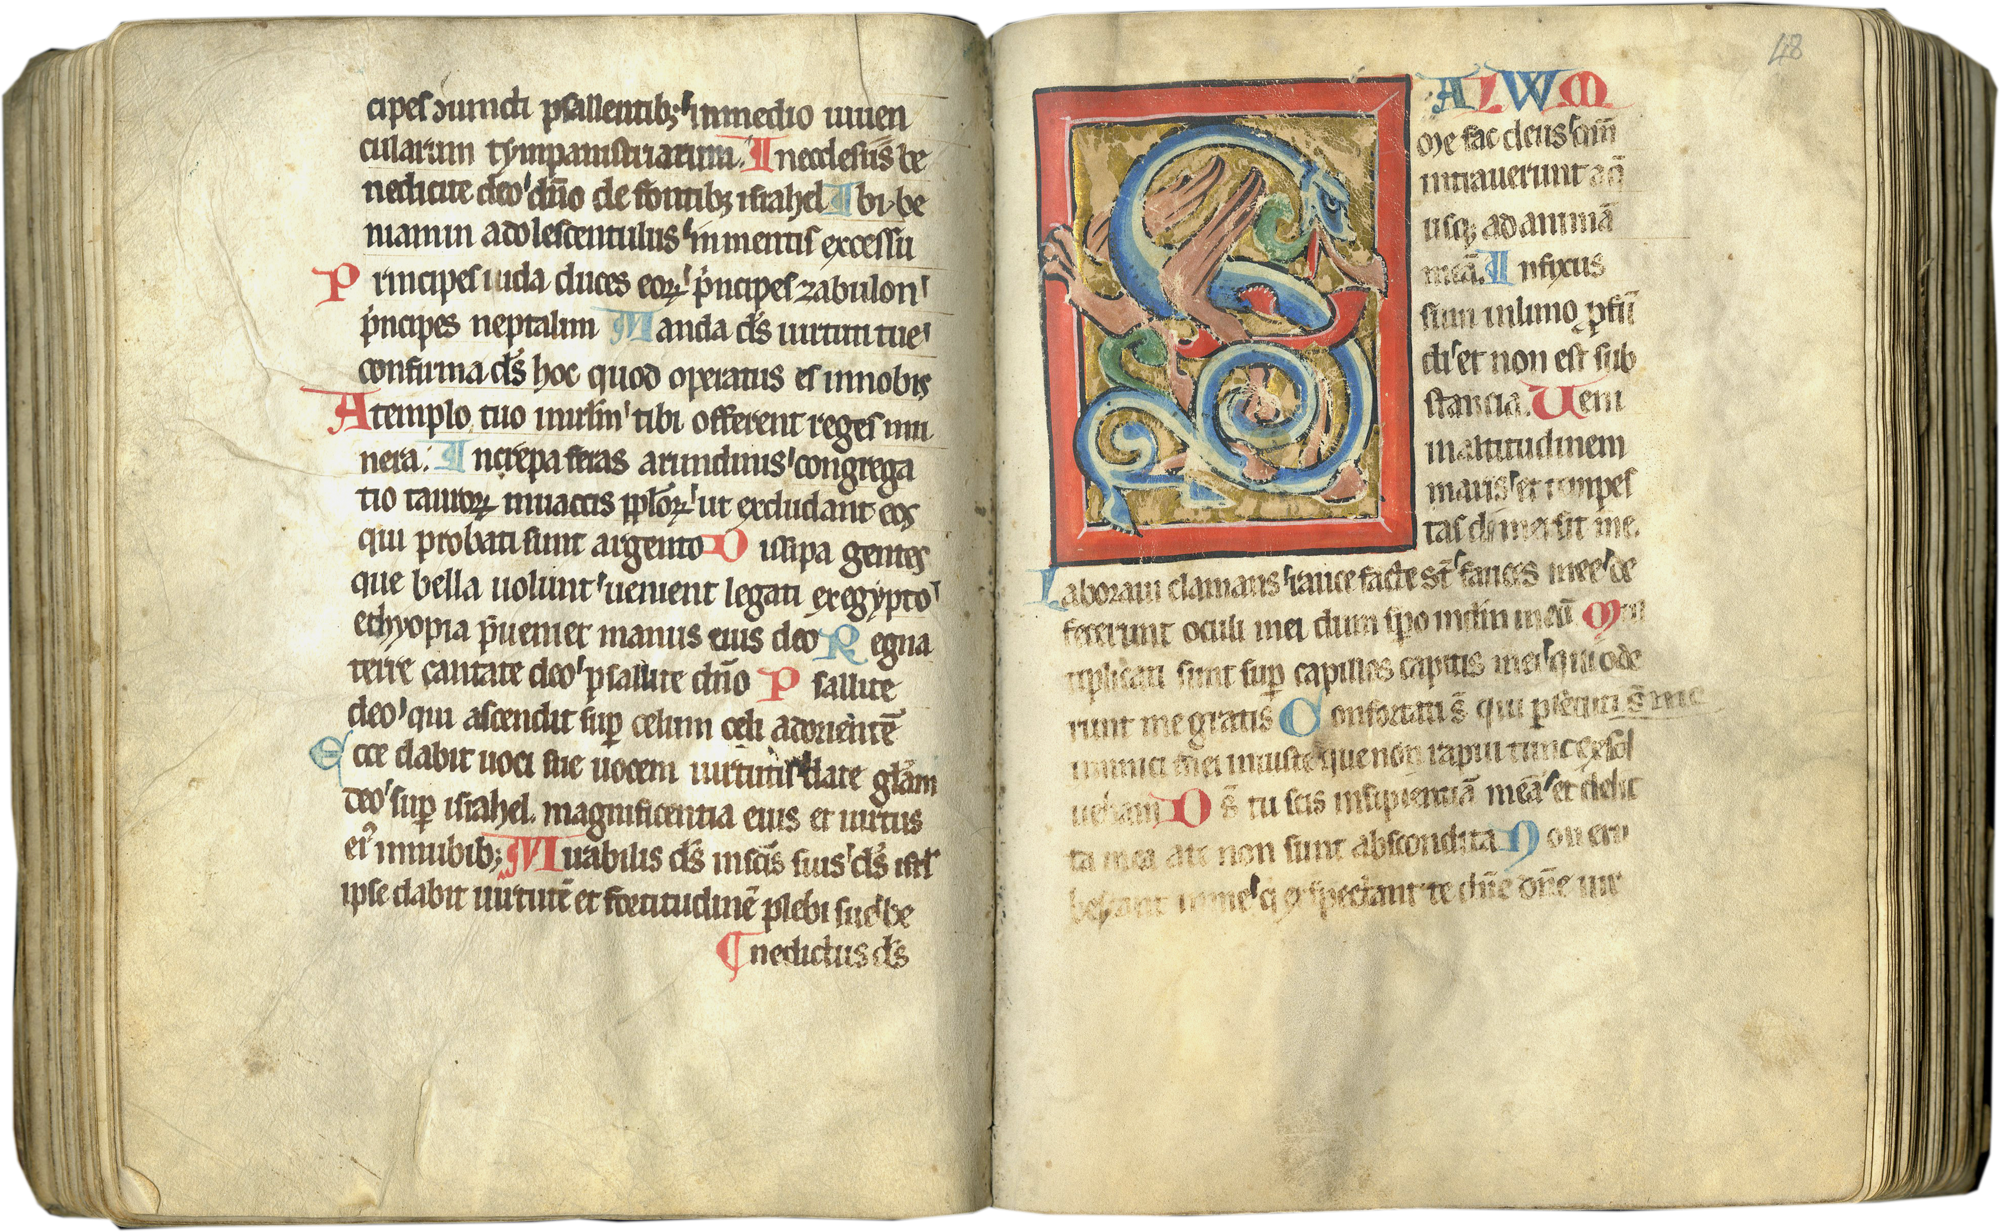 cipes ɔiuncti psallentibꝫ inmedio iuuen
cularum tympanistriarum. Inecclesiis be
nedicite deo dn̄o de fontibꝫ israhel Ibi be
niamin adolescentulus inmentis excessu
Principes iuda duces eoꝝ pͥncipes zabulon
pͥncipes neptalim Manda ds̄ uirtuti tue
confirma ds̄ hoc quod operatus es innobis
Atemplo tuo inirl̄m tibi offerent reges mu
nera. Increpa feras arundinis congrega
tio tauroꝝ inuaccis ppl̄oꝝ ut excludant eos
qui probati sunt argento Dissipa gentes
que bella uolunt uenient legati exegypto
ethyopia p̄ueniet manus eius deo Regna
terre cantate deo psallite dn̄o Psallite
deo qui ascendit suꝑ celum celi adorientē
Ecce dabit uoci sue uocem uirtutis date glām
deo suꝑ israhel. magnificentia eius et uirtus
ei innubibꝫ Mirabilis ds̄ insc̄is suis ds̄ isrl̄
ipse dabit uirtutē et fortitudinē plebi sue be
nedictus ds̄
48
SALWM
me fac deus qm̄
intrauerunt aq̄
usqꝫ ad animā
meā. Infixus
sum inlimo ꝓfū
di et non est sub
stancia. Ueni
inaltitudinem
maris et tempes
tas dimersit me.
Laboraui clamans rauce facte st̄ fauces mee de
fecerunt oculi mei dum spo indm̄ meū Mul
tiplicati sunt suꝑ capillos capitis mei qui ode
runt me gratis Confortati s̄ qui ꝑsecuti s̄ me
inimici mei iniuste que non rapui tunc exsol
uebam Ds̄ tu scis insipientiā meā et delic
ta mea a te non sunt abscondita Non eru
bescant inme q̇ exspectant te dn̄e dn̄e uir